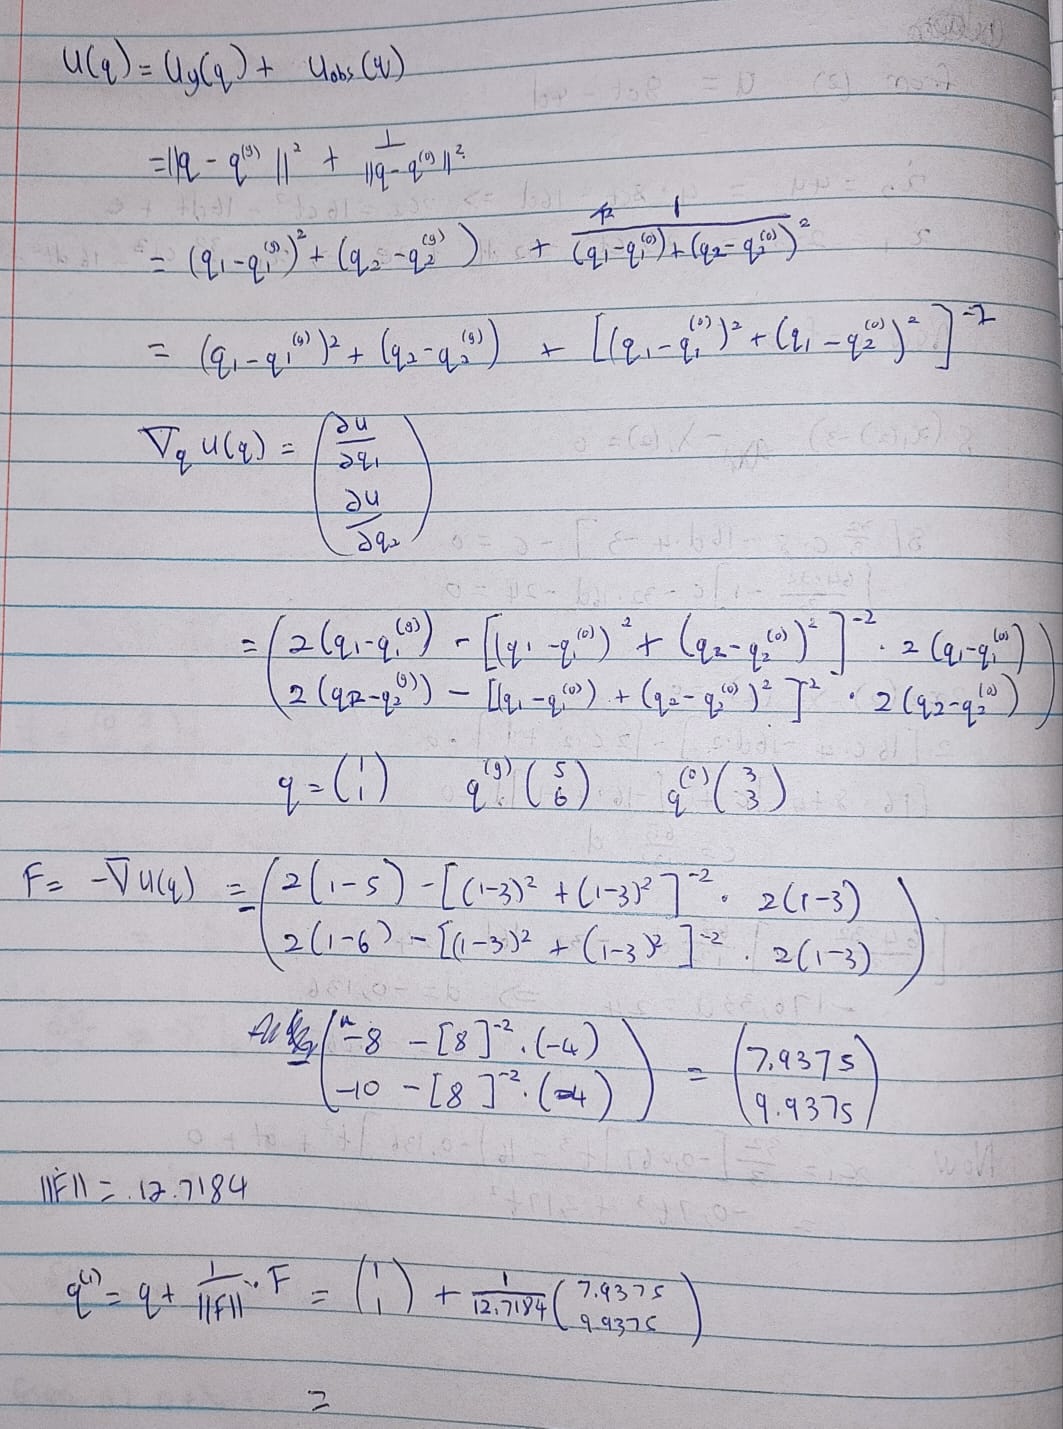 U(q) = Ug(q) + Uobs(q)
= ||q - q^(g)||² + 1/||q - q^(0)||²
= (q₁ - q₁^(g))² + (q₂ - q₂^(g)) + 1/(q₁ - q₁^(0)) + (q₂ - q₂^(0))²
= (q₁ - q₁^(g))² + (q₂ - q₂^(g)) + [(q₁ - q₁^(0))² + (q₁ - q₂^(0))²]^-1
∇q U(q) = (∂u/∂q₁
∂u/∂q₂)
= (2(q₁ - q₁^(g)) - [(q₁ - q₁^(0))² + (q₂ - q₂^(0))²]^-2 · 2(q₁ - q₁^(0))
2(q₂ - q₂^(g)) - [(q₁ - q₁^(0)) + (q₂ - q₂^(0))²]^-2 · 2(q₂ - q₂^(0)))
q = (1 1) q^(g) (5 6) q^(0) (3 3)
F = -∇U(q) = (2(1-5) - [(1-3)² + (1-3)²]^-2 · 2(1-3)
2(1-6) - [(1-3)² + (1-3)²]^-2 · 2(1-3))
(-8 - [8]^-2 · (-4)
-10 - [8]^-2 · (-4)) = (7,9375
9.9375)
||F|| = 12.7184
q^(1) = q + 1/||F|| · F = (1 1) + 1/12,7184 (7.9375
9.9375)
=